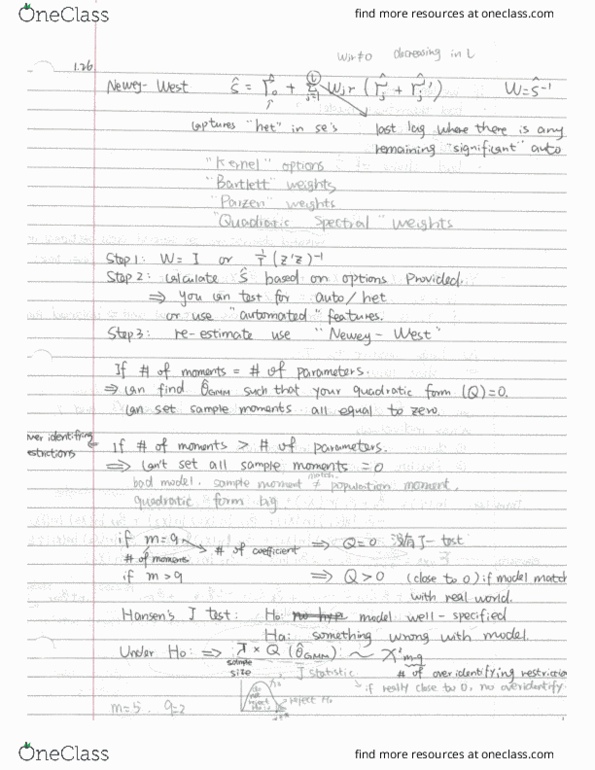 OneClass
find more resources at oneclass.com
Wjr≠0 decreasing in L
1.26
Newey-West ŝ = Γ̂₀ + Σ Wjr (Γ̂j + Γ̂j') W=ŝ⁻¹
j=1
captures "het" in se's last lag where there is any
remaining "significant" auto
"Kernel" options
"Bartlett" weights
"Parzen" weights
"Quadratic Spectral" weights
Step 1: W= I or 1/T (z'z)⁻¹
Step 2: calculate ŝ based on options Provided.
⇒ you can test for auto/het
or use "automated" features.
Step 3: re-estimate use "Newey-West"
If # of moments = # of parameters.
⇒ can find θ̂GMM such that your quadratic form (Q)=0.
can set sample moments all equal to zero.
over identifying
restrictions
If # of moments > # of parameters.
⇒ Can't set all sample moments =0
bad model. sample moment ≠ population moment.
quadratic form big
if m=q # of coefficient ⇒ Q=0 没有J-test
# of moments
if m>q ⇒ Q>0 (close to 0) if model match
with real world.
Hansen's J test: Ho: model well-specified
Ha: something wrong with model.
Under Ho: ⇒ T × Q (θ̂GMM) ~ χ²m-q
sample
size
J statistic # of overidentifying restriction
if really close to 0, no overidentify.
reject Ho
m=5. q=2
OneClass
find more resources at oneclass.com